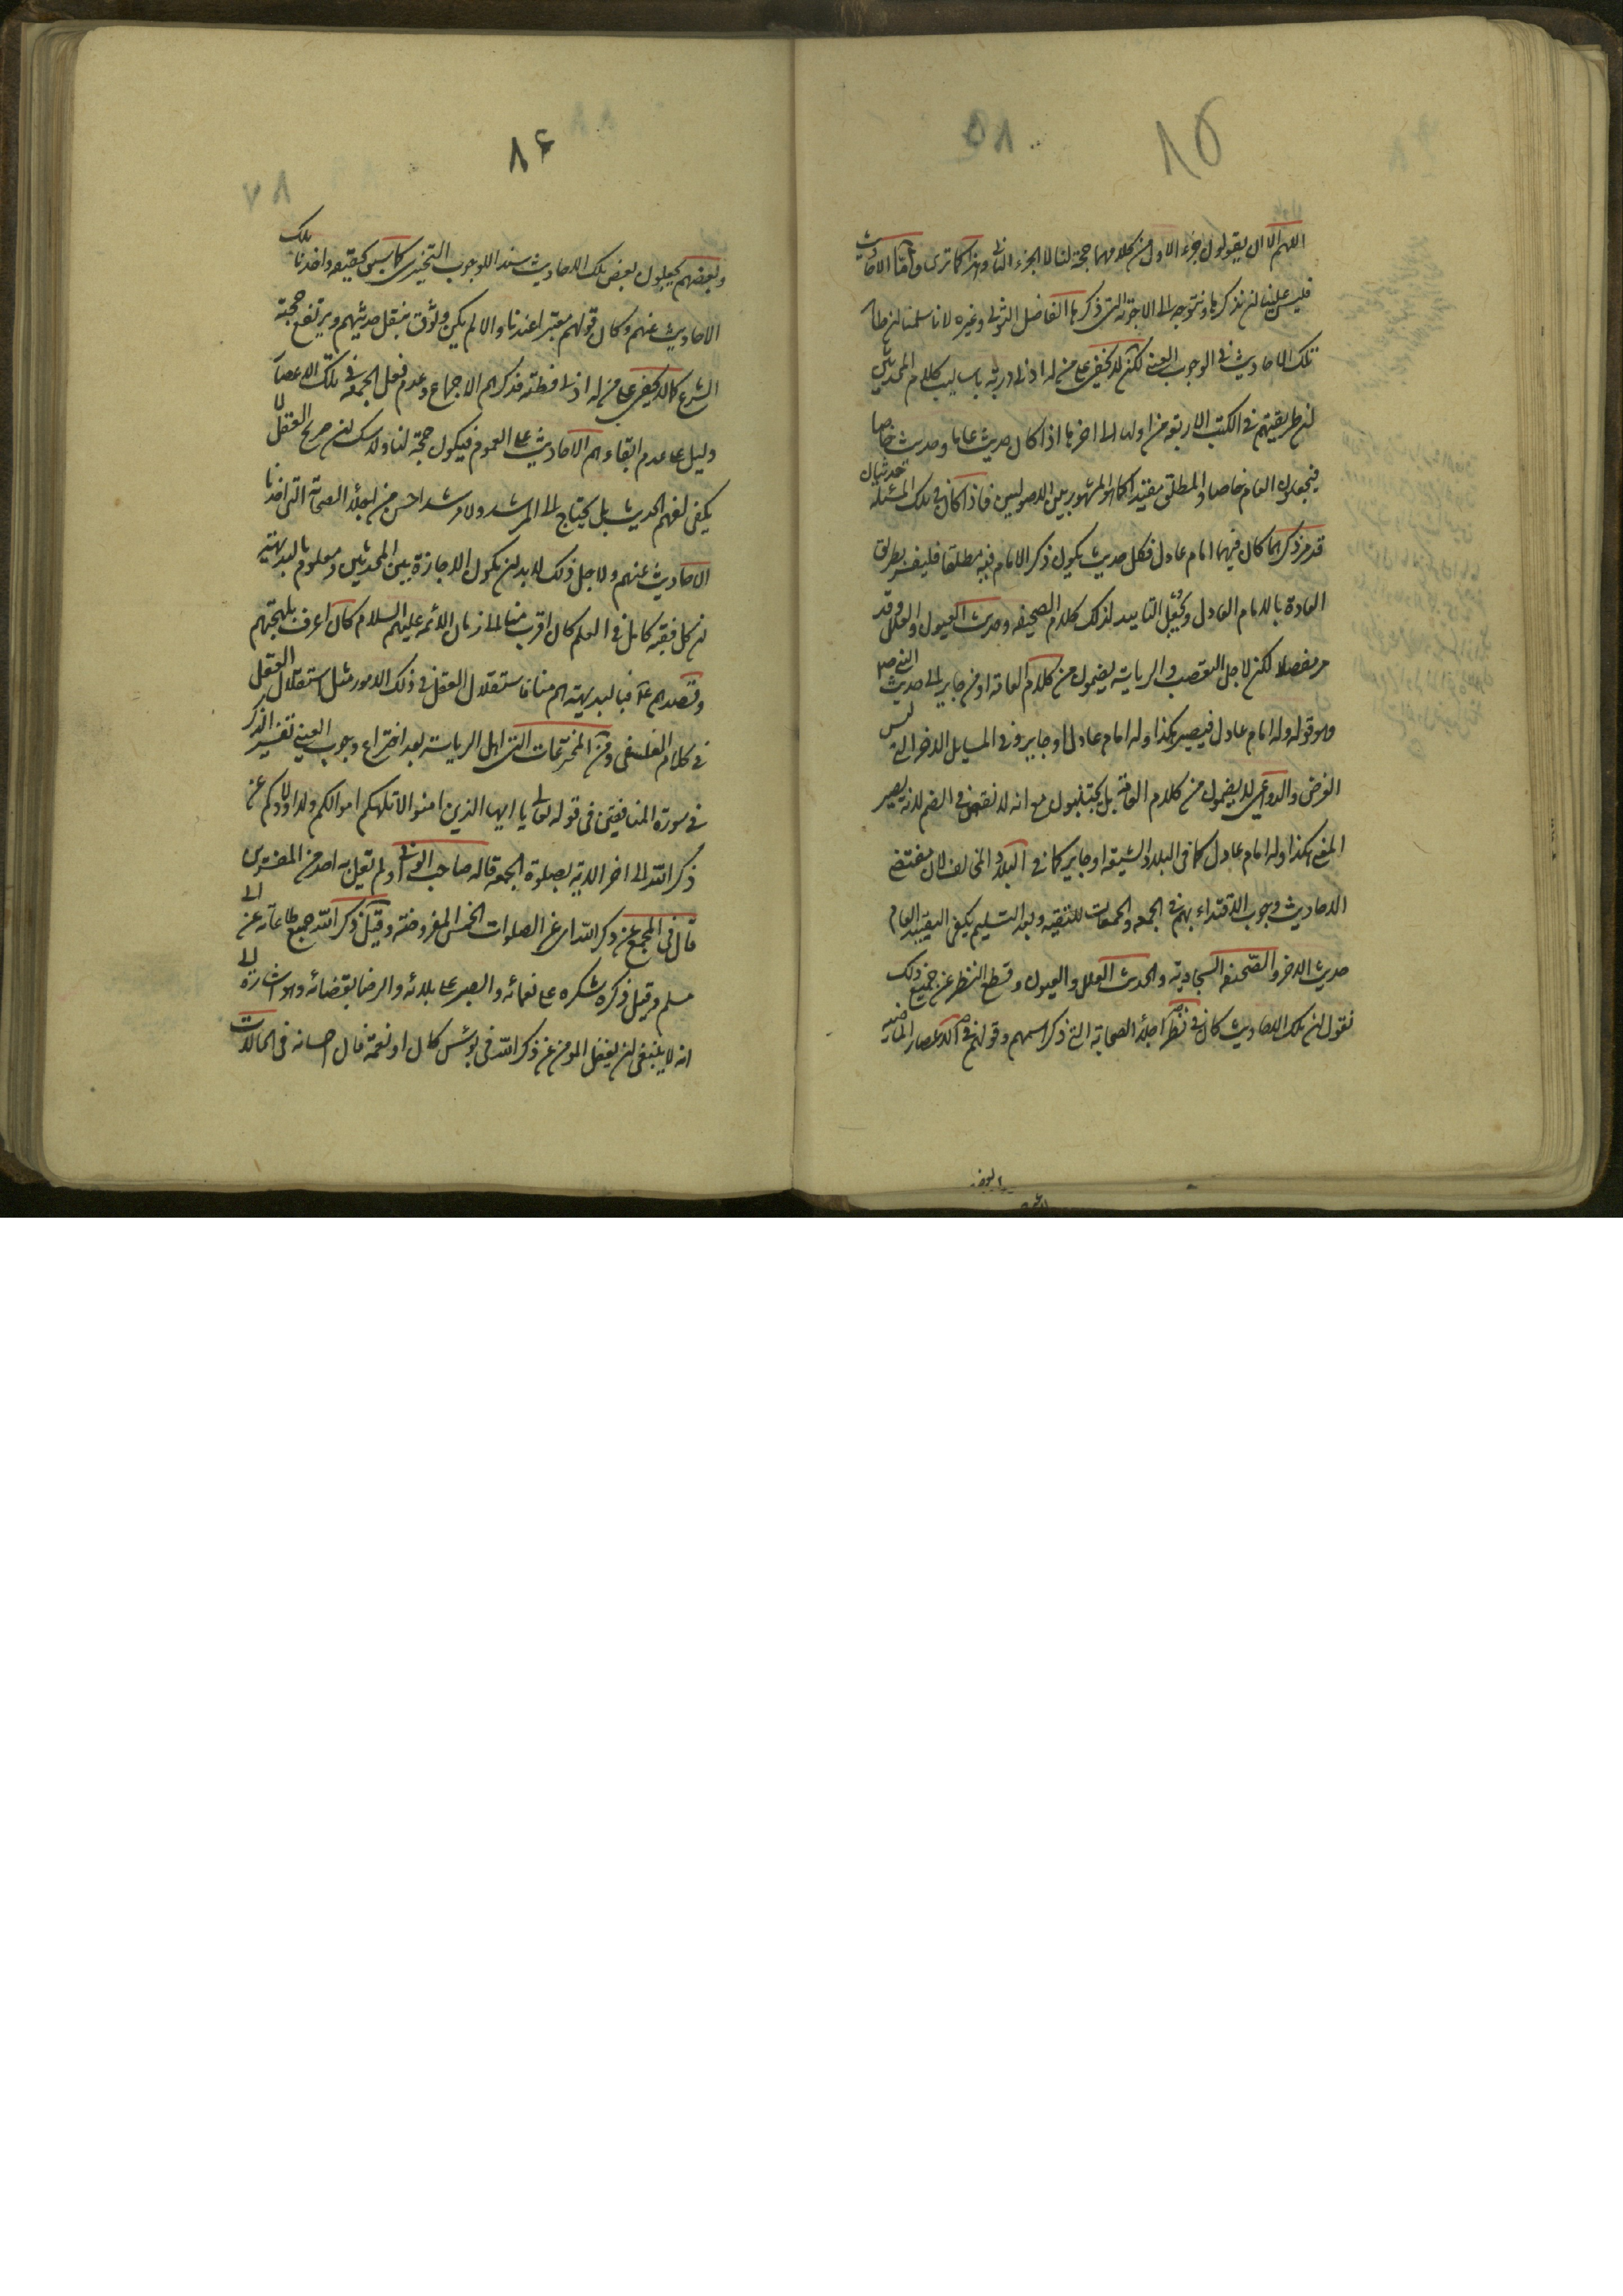 ۸۵
اللهم الا ان يقولون جزء الاول من كلامهما حجة لنا لا الجزء الثانى وهذا كما ترى واما الاحاديث
فليس علينا ان نذكرها ونتوجه الى الاجوبة التى ذكرها الفاضل التونى وغيره لانا سلمنا ان ظاهر
تلك الاحاديث فى الوجوب العينى لكن لا يخفى على من له ادنى دربة باساليب كلام المحدثين
ان طريقتهم فى الكتب الاربعة من اولها الى اخرها اذا كان حديث عاما وحديث خاصا
فيجعلون العام خاصا والمطلق مقيدا كما هو المشهور بين الاصوليين فاذا كان فى تلك المسئلة حديثان
قد مر ذكرهما كان فيهما امام عادل فكل حديث يكون ذكر الامام فيه مطلقا فليفسر بطريق
العادة بالامام العادل ويحتمل التاييد لذلك كلام الصحيفه وحديث العيون والعلل وقد
مر مفصلا لكن لاجل التعصب والرياسة يضمون من كلام العامة او من جاير الى حديث النبى ص
وهو قوله وله امام عادل فيصير هكذا وله امام عادل او جاير وفى المسايل الاخر التى ليس
الغرض والدواعى لا يضمون من كلام العامة بل يجتنبون مع انه لا نقص فى الضم لانه يصير
المعنى هكذا وله امام عادل كما فى البلاد الشيعة او جاير كما فى البلاد المخالف لان مقتضى
الاحاديث وجوب الاقتداء بهم فى الجمعه والجمعات للتقيه وبعد التسليم يكفى التقييد العام
حديث الاخر والصحيفة السجادية والحديث العلل والعيون وقطع النظر عن جميع ذلك
نقول ان تلك الاحاديث كان فى نظر اجلة الصحابة التى ذكر اسمهم وقولهم فى الاعصار الماضيه
۸۶
وبعضهم يجعلون بعض تلك الاحاديث سندا للوجوب التخييرى كما سبق تحقيقه واخذنا تلك
الاحاديث عنهم وكان قولهم معتبرا عندنا والا لم يكن وثوق بنقل حديثهم ويرتفع حجية
الشرع كما لا يخفى على من له ادنى فطنة فذكرهم الاجماع وعدم فعل الجمعة فى تلك الاعصار
دليل على عدم ابقاءهم الاحاديث على العموم فيكون حجة لنا ولا شك ان صريح العقل لا
يكفى لفهم الحديث بل يحتاج الى المرشد ولا مرشد احسن من اجلة الصحابة التى اخذنا
الاحاديث عنهم ولاجل ذلك لا بد ان يكون الاجازة بين المحدثين ومعلوم بالبديهة
ان كل فقيه كامل فى العلم كان اقرب منا الى زمان الائمه عليهم السلام كان اعرف بلهجتهم
وقصدهم فبالبديهة استقلال العقل فى ذلك الامور مثل استقلال العقل
فى كلام الفلسفى ومن المخترعات التى اهل الرياسة بعد اختراع وجوب العينى تفسير الذكر
فى سورة المنافقين فى قوله تعالى يا ايها الذين امنوا لا تلهكم اموالكم ولا اولادكم عن
ذكر الله الى اخر الاية بصلوة الجمعة قاله صاحب الوافى ولم يقل به احد من المفسرين
قال فى المجمع عن ذكر الله اى عن الصلوات الخمس المفروضة وقيل ذكر الله جميع طاعاته عن ابى
مسلم وقيل ذكره شكره على نعمائه والصبر على بلائه والرضا بقضائه وهو اشارة الى
انه لا ينبغى ان يغفل المومن عن ذكر الله فى بؤس كان او نعمة فان احسانه فى الحالات